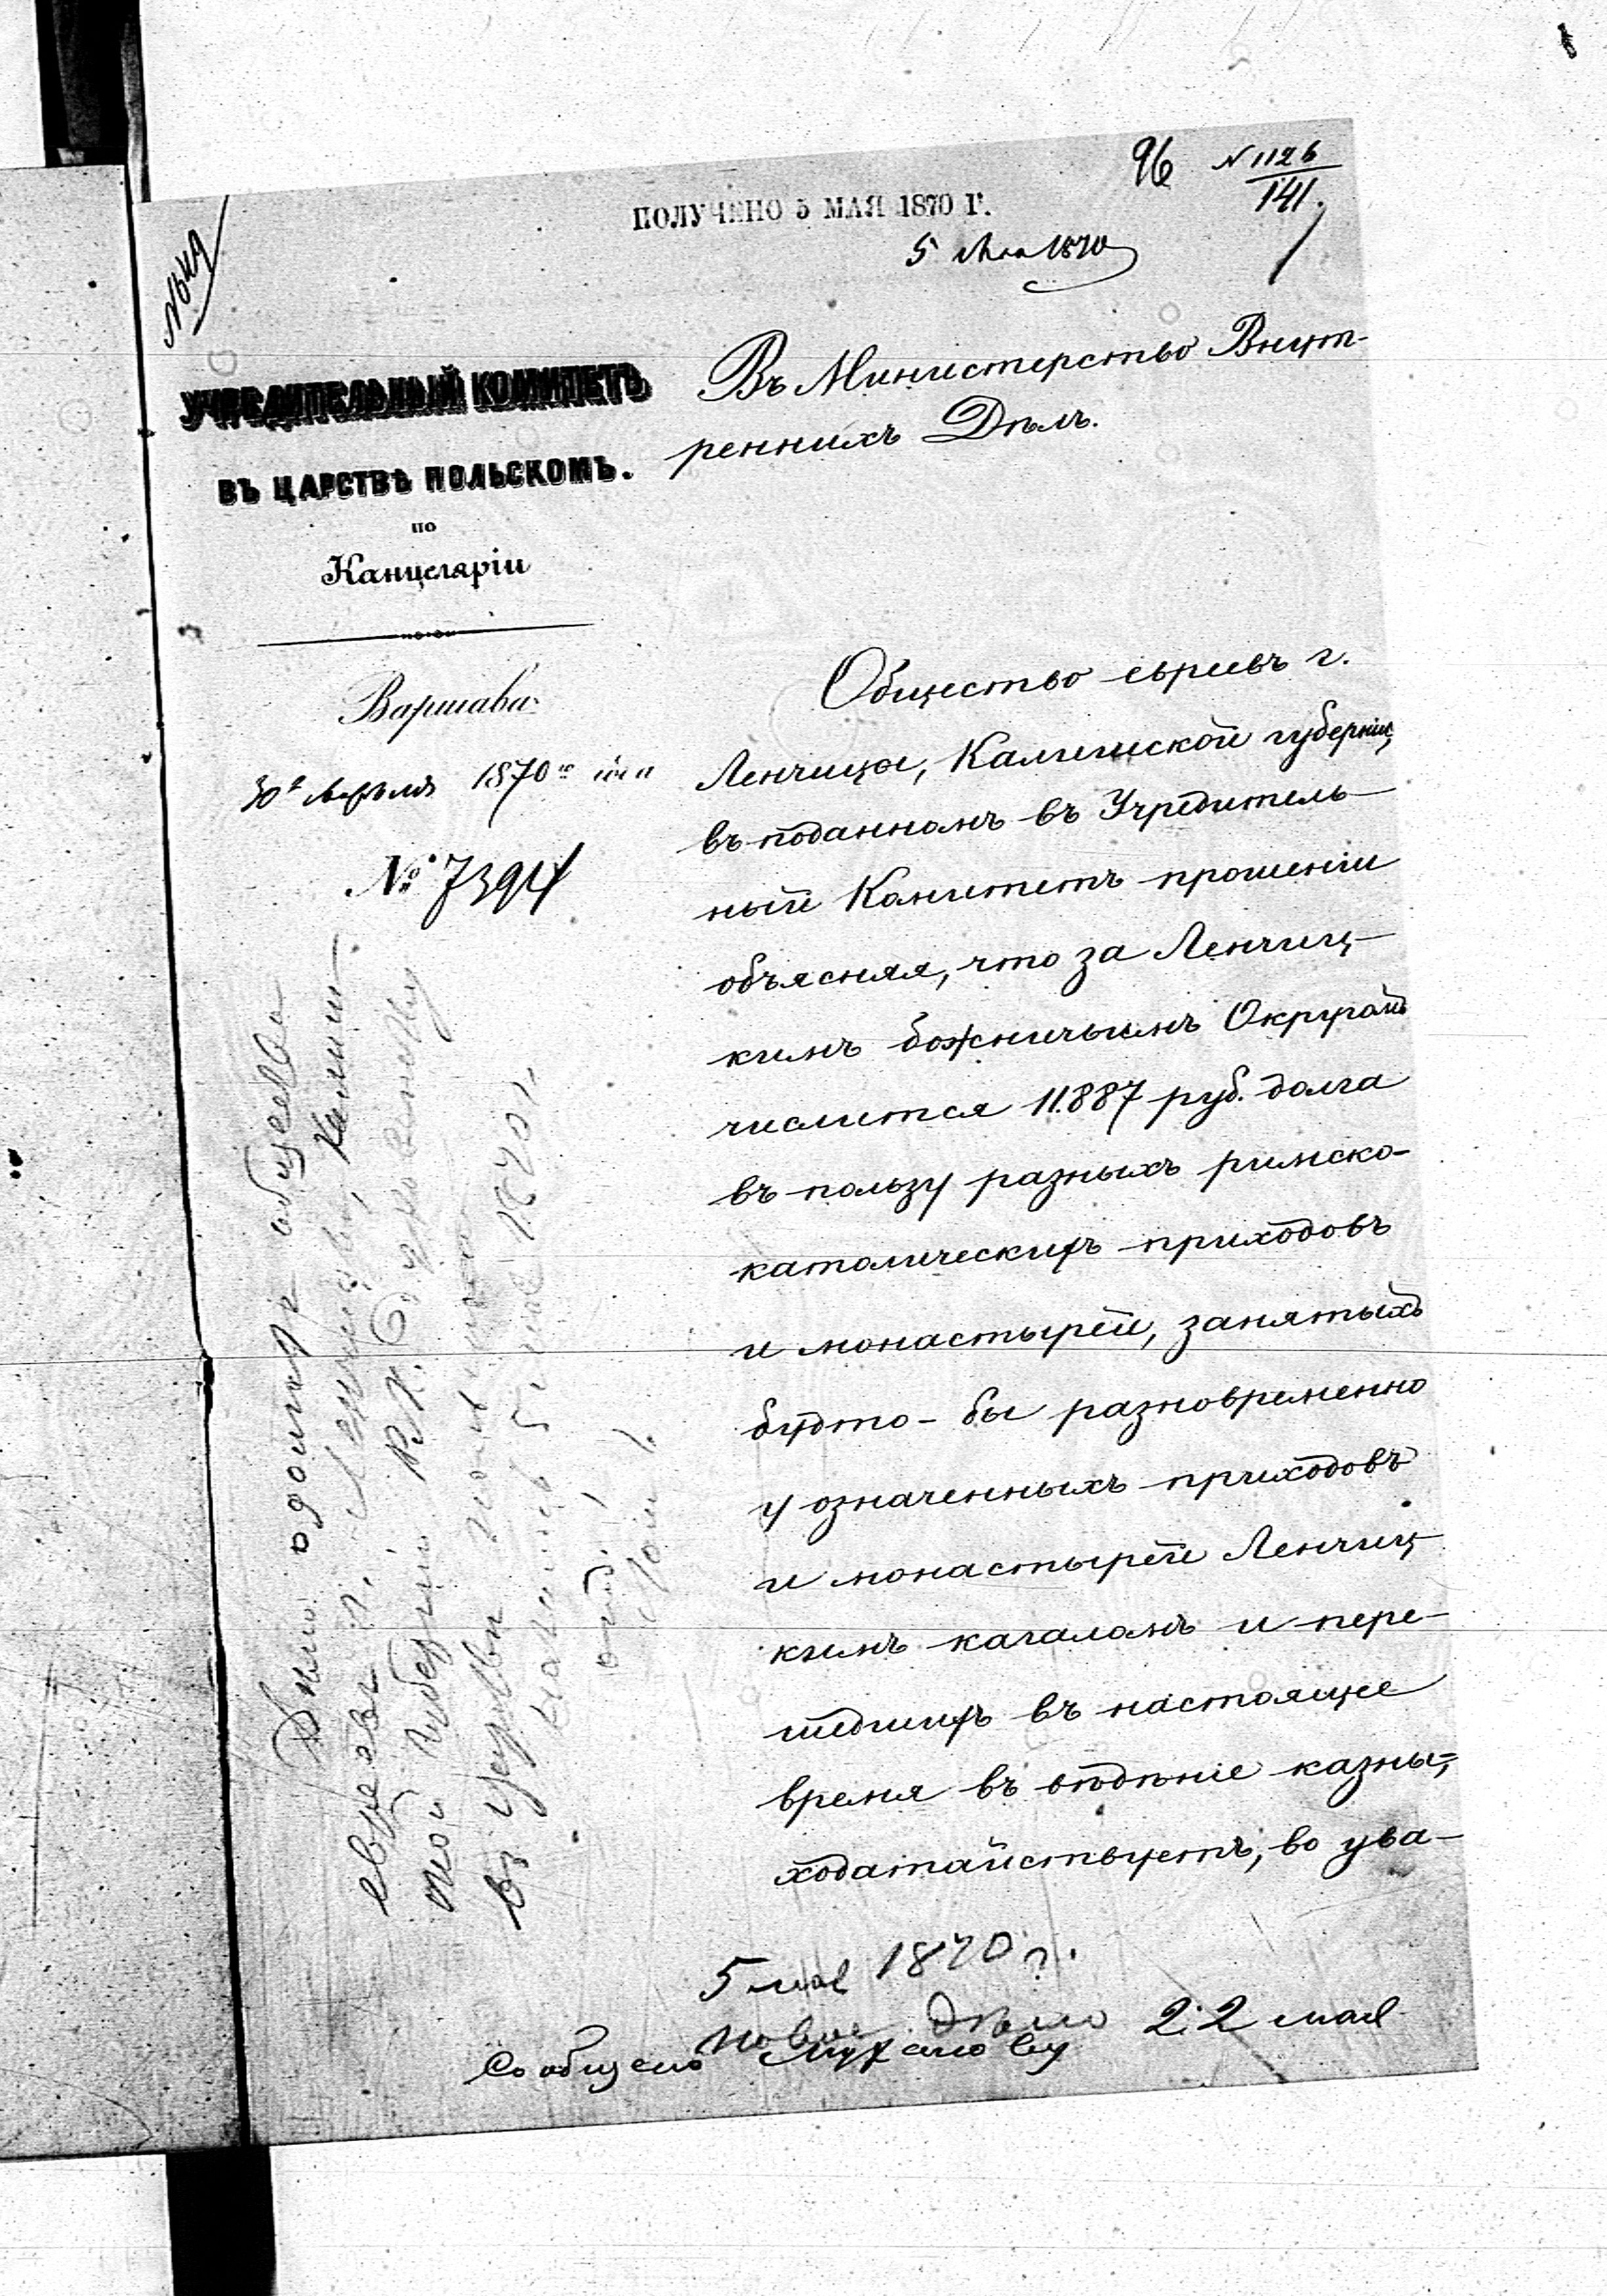 96 N 1126
141.
ПОЛУЧЕНО 5 МАЯ 1870 Г.
5 Мая 1870
УЧРЕДИТЕЛЬНЫЙ КОМИТЕТЪ
ВЪ ЦАРСТВѢ ПОЛЬСКОМЪ.
по
Канцеляріи
Варшава
30го Апрѣля 1870го года
№ 7394
Въ Министерство Внут-
реннихъ Дѣлъ.
Общество евреевъ г.
Ленчицы, Калишской губерніи,
въ поданномъ въ Учредитель-
ный Комитетъ прошеніи
объясняя, что за Ленчиц-
кимъ божничьимъ Округомъ
числится 11.887 руб. долга
въ пользу разныхъ римско-
католическихъ приходовъ
и монастырей, занятыхъ
будто-бы разновременно
у означенныхъ приходовъ
и монастырей Ленчиц-
кимъ кагаломъ и пере-
шедшихъ въ настоящее
время въ вѣдѣніе казны,
ходатайствуетъ, во ува-
Дѣло о долгах общества
евреевъ г. Ленчицы, Калиш-
ской губерніи Р. К. Духовенству
5 мая 1870 г.
новое дѣло
Сообщено Муханову 22 мая